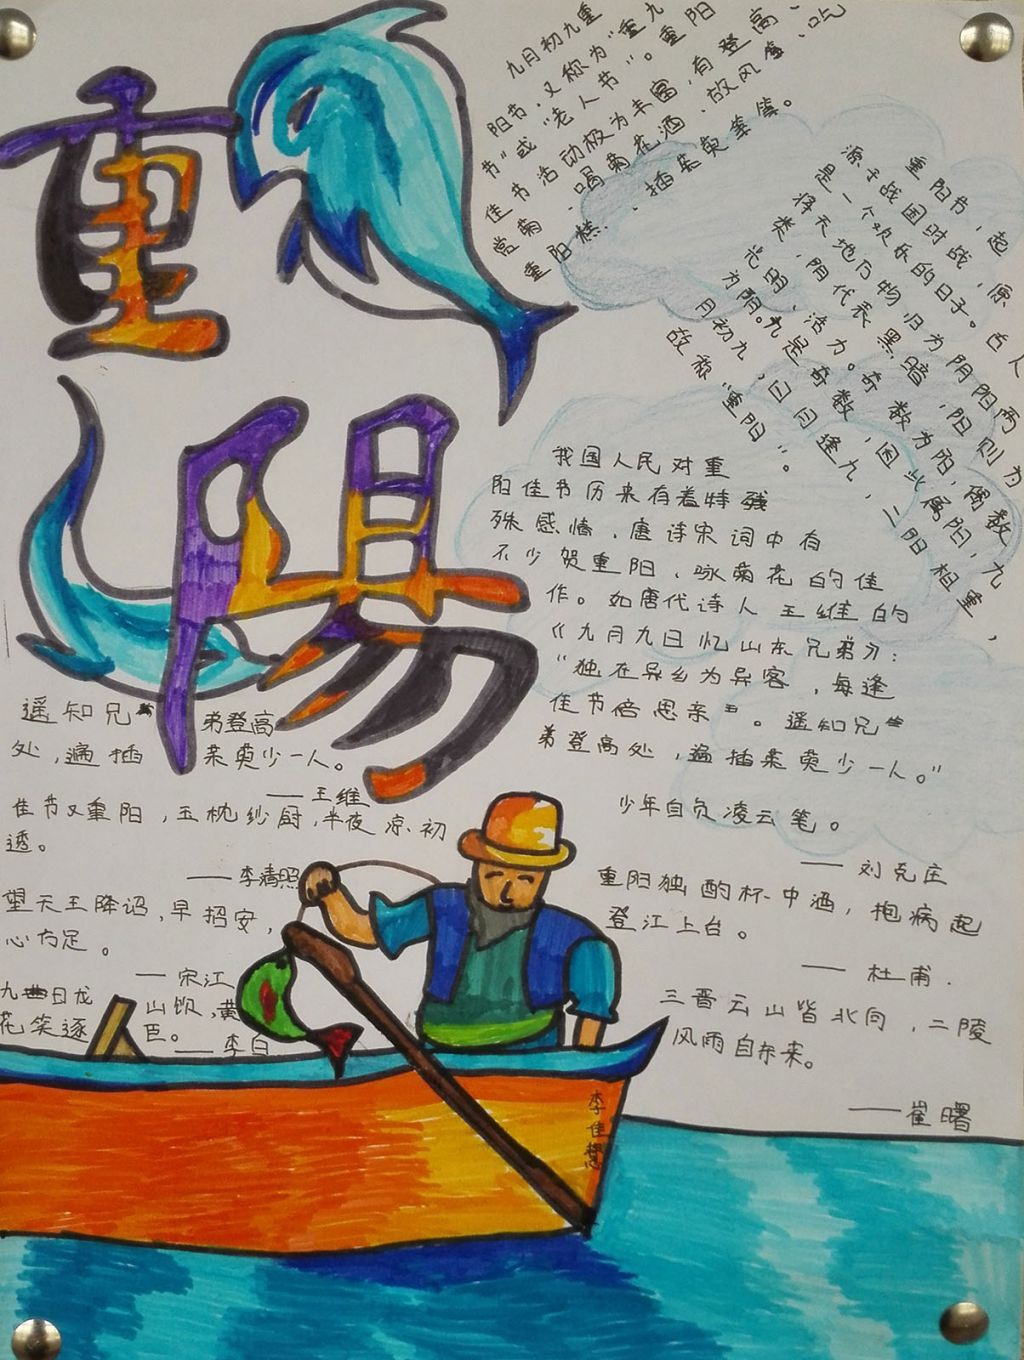 重
陽
九月初九重
阳节,又称为"重九
节"或"老人节"。重阳
佳节活动极为丰富,有登高、
赏菊、喝菊花酒、放风筝、吃
重阳糕、插茱萸等等。
重阳节,起
源于战国时战,原
是一个欢乐的日子。古人
将天地万物归为阴阳两
类,阴代表黑暗,阳则为
光明、活力。奇数为阳,偶数
为阴。九是奇数,因此属阳,九
月初九,日月逢九,二阳相重,
故称"重阳"。
我国人民对重
阳佳节历来有着特
殊感情,唐诗宋词中有
不少贺重阳、咏菊花的佳
作。如唐代诗人王维的
《九月九日忆山东兄弟》:
"独在异乡为异客,每逢
佳节倍思亲。遥知兄
弟登高处,遍插茱萸少一人。"
遥知兄弟登高
处,遍插茱萸少一人。
——王维
佳节又重阳,玉枕纱厨,半夜凉初
透。
——李清照
望天王降诏,早招安,
心方足。
—宋江
九日龙山饮,黄
花笑逐臣。
——李白
少年自负凌云笔。
——刘克庄
重阳独酌杯中酒,抱病起
登江上台。
——杜甫.
三晋云山皆北向,二陵
风雨自东来。
——崔曙
李佳